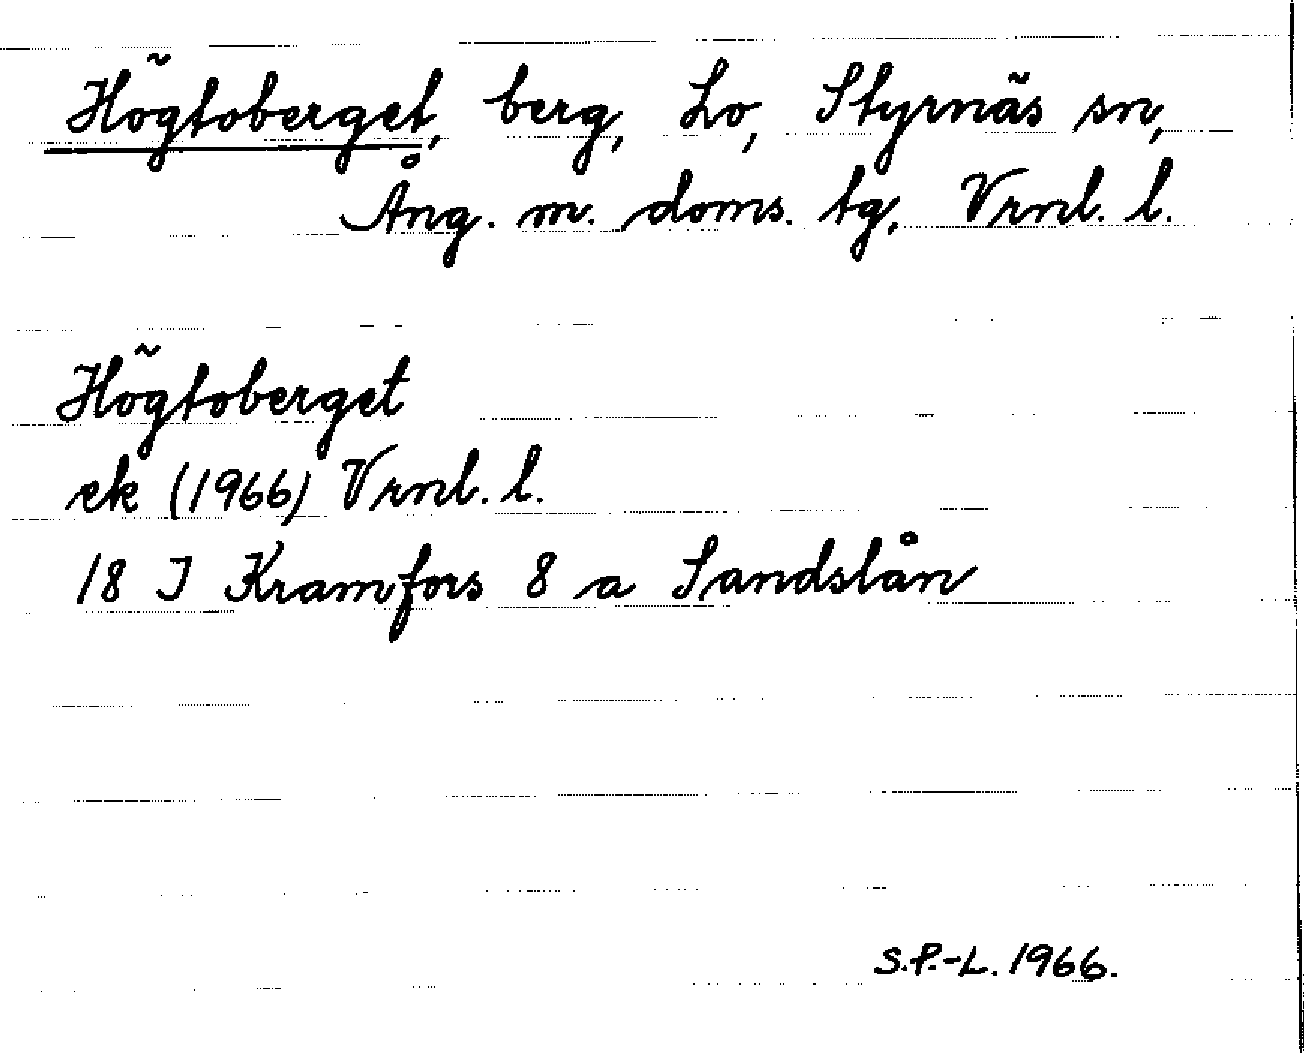 Högtoberget, berg, Lo, Styrnäs sn,
Ång. m. doms. tg, Vrnl. l.
Högtoberget
ek (1966) Vrnl. l.
18 I Kramfors 8 a Sandslån
S.P.-L. 1966.